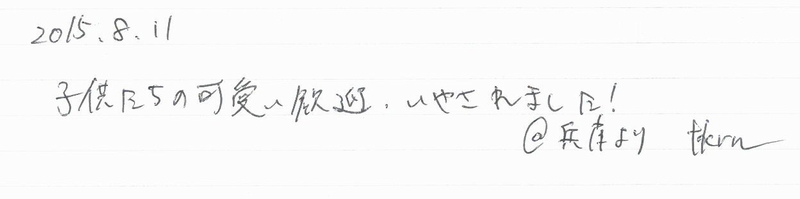 2015.8.11
子供たちの可愛い歓迎、いやされました!
@兵庫より